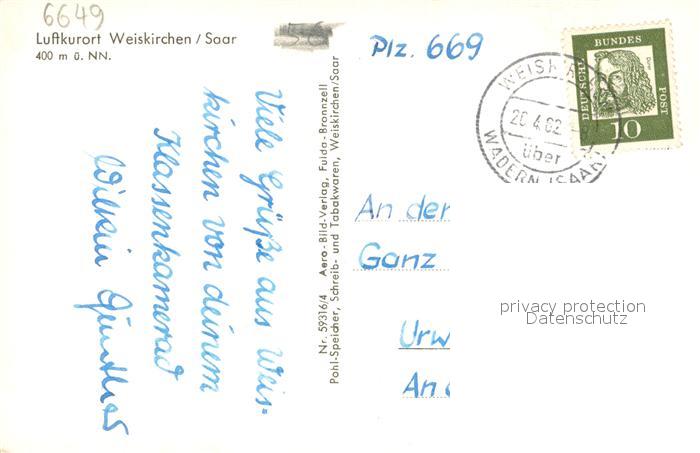 6649
Luftkurort Weiskirchen / Saar
400 m ü. NN.
Viele Grüße aus Weis-
kirchen von deinem
Klassenkamerad
Nr. 59316/4 Aero-Bild-Verlag, Fulda-Bronnzell
Pohl-Speicher, Schreib- und Tabakwaren, Weiskirchen/Saar
Plz. 669
DEUTSCHE BUNDESPOST
Dürer
10
20.4.62
über
WADERN (SAAR)
An der
Ganz
Urw
An
privacy protection
Datenschutz